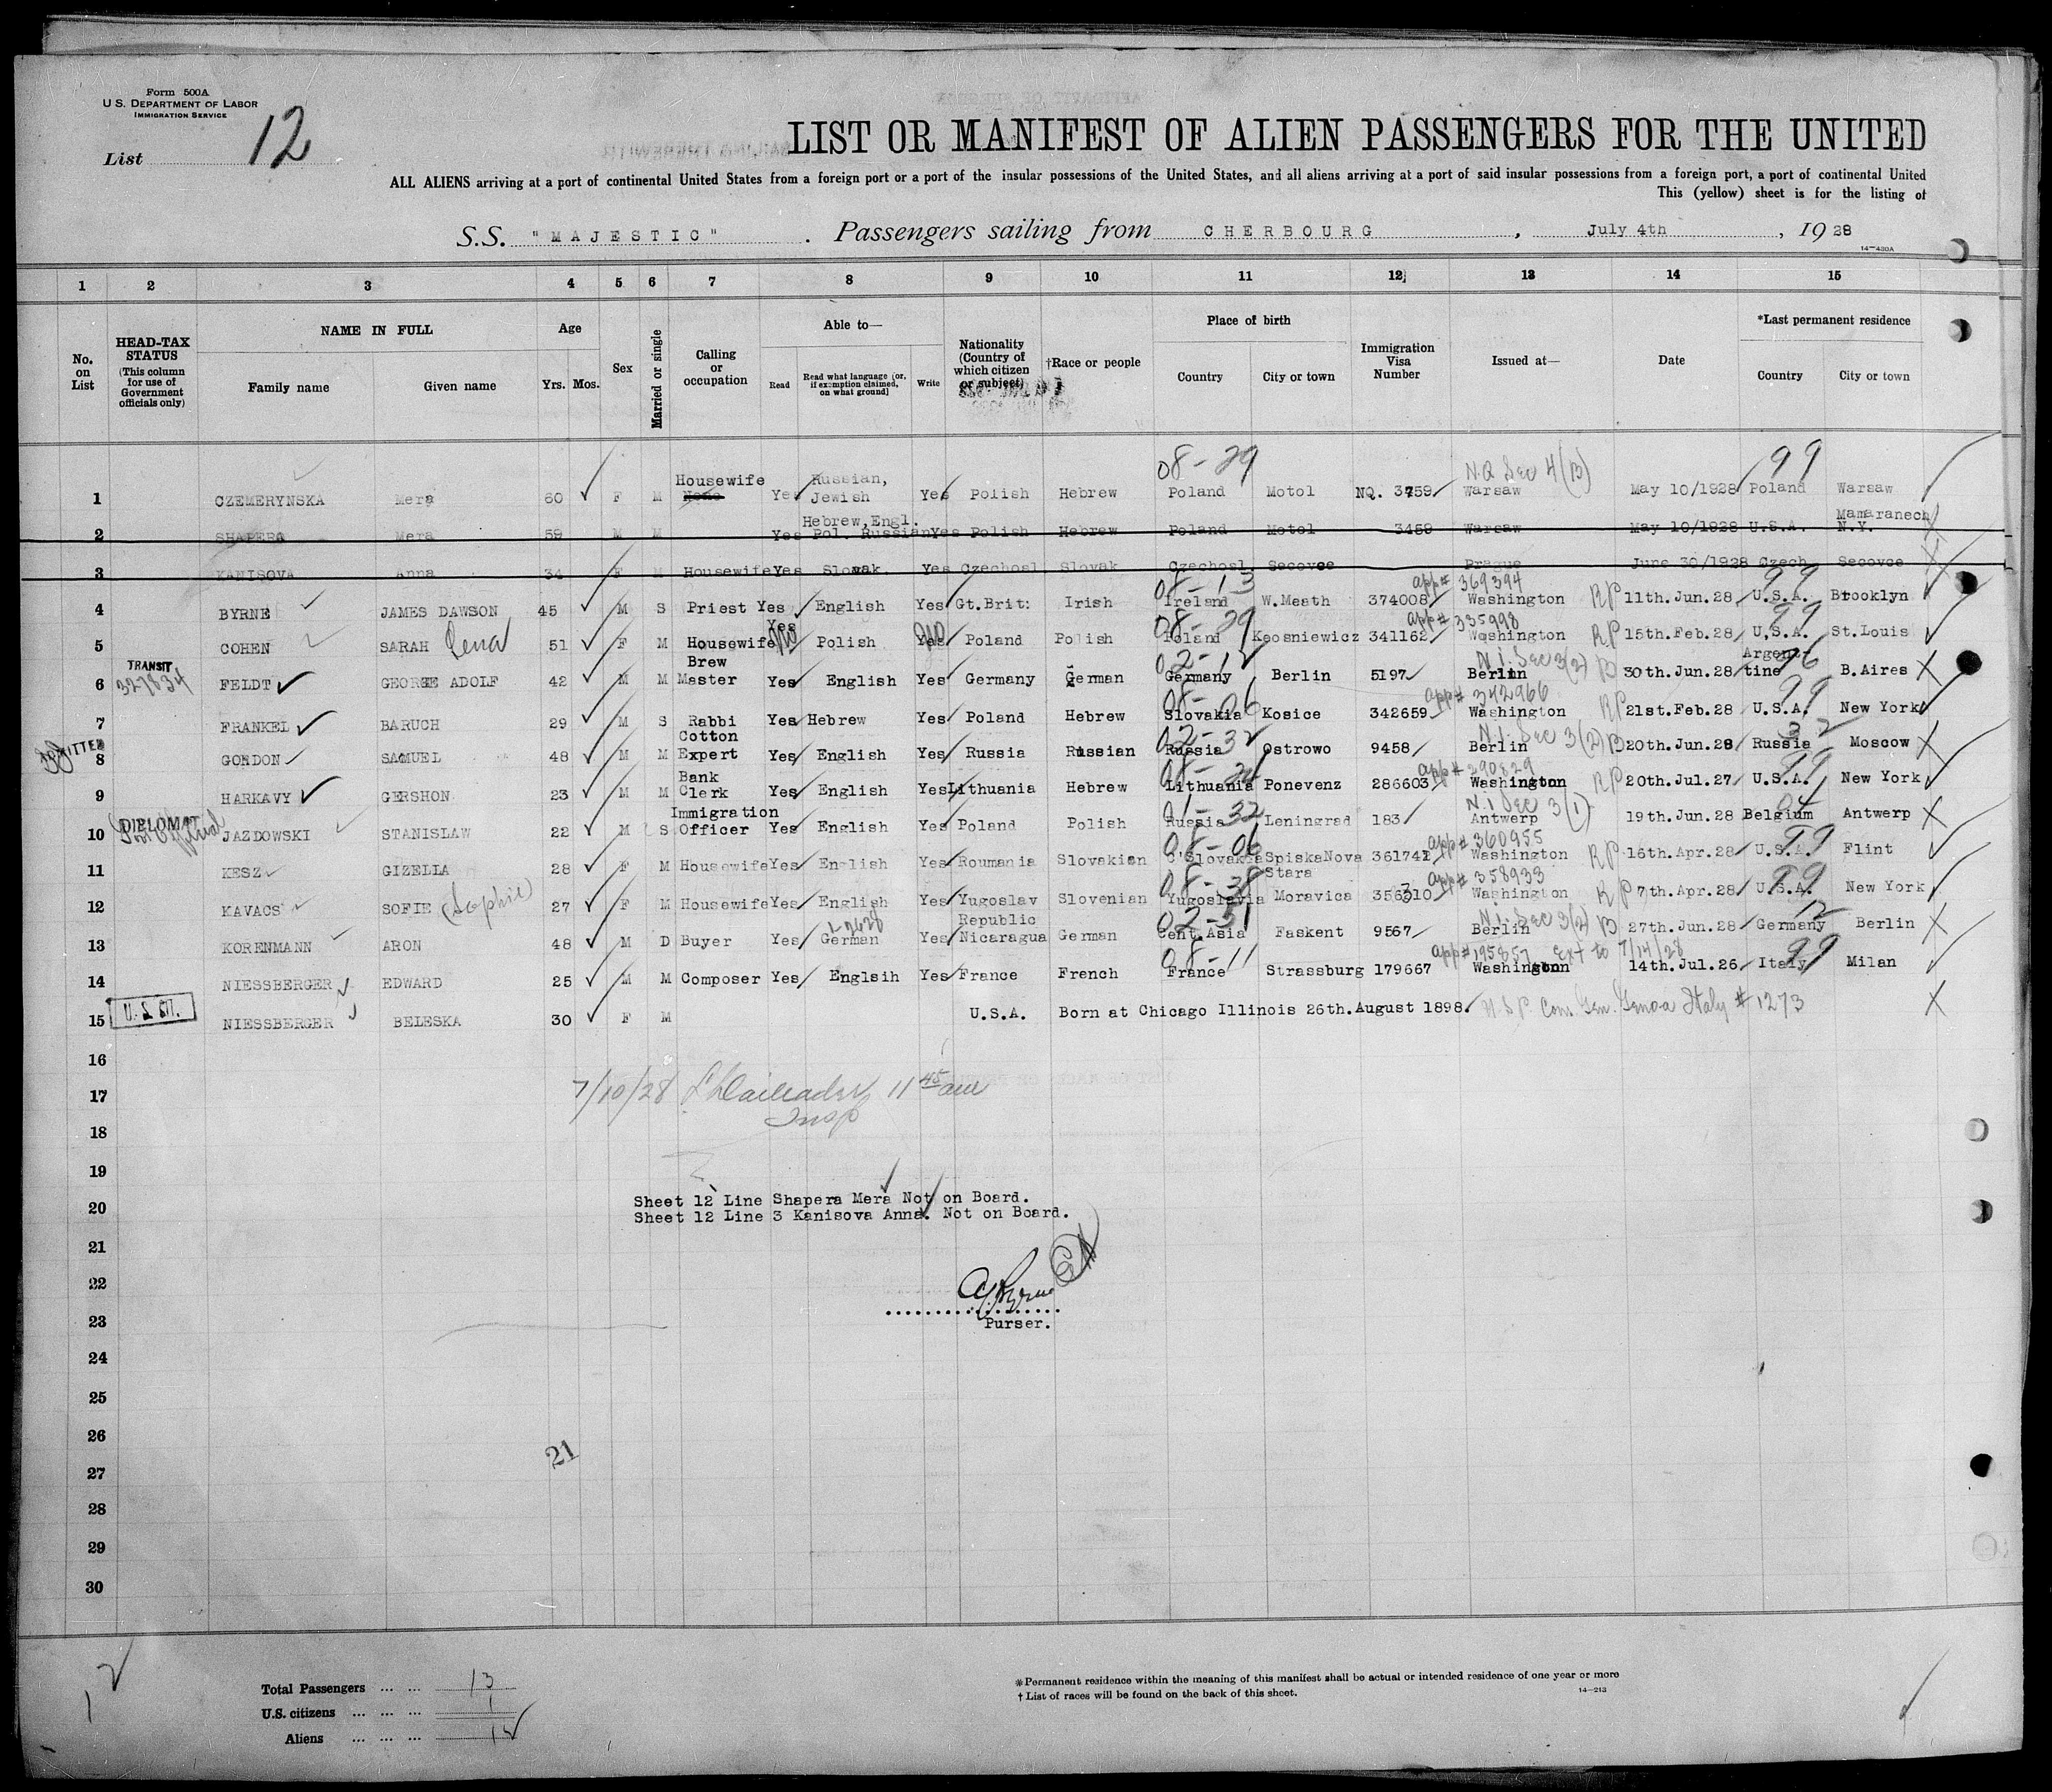 Form 500A
U.S. DEPARTMENT OF LABOR
IMMIGRATION SERVICE
List 12
LIST OR MANIFEST OF ALIEN PASSENGERS FOR THE UNITED
ALL ALIENS arriving at a port of continental United States from a foreign port or a port of the insular possessions of the United States, and all aliens arriving at a port of said insular possessions from a foreign port, a port of continental United
This (yellow) sheet is for the listing of
S.S. "MAJESTIC" . Passengers sailing from CHERBOURG , July 4th , 1928
14—430A
1 2 3 4 5 6 7 8 9 10 11 12 13 14 15
No. on List
HEAD-TAX STATUS (This column for use of Government officials only)
NAME IN FULL
Family name Given name
Age
Yrs. Mos.
Sex
Married or single
Calling or occupation
Able to—
Read Read what language (or, if exemption claimed, on what ground) Write
Nationality (Country of which citizen or subject)
†Race or people
Place of birth
Country City or town
Immigration Visa Number
Issued at—
Date
*Last permanent residence
Country City or town
08-29 N.Q Sec 4(B) 99
1 CZEMERYNSKA Mera 60 F M Housewife None Yes Russian, Jewish Yes Polish Hebrew Poland Motol NQ. 3459 Warsaw May 10/1928 Poland Warsaw
2 SHAPERA Mera 59 M M Yes Hebrew, Engl. Pol. Russian Yes Polish Hebrew Poland Motol 3459 Warsaw May 10/1928 U.S.A. Mamaranech N.Y.
3 KANISOVA Anna 34 F M Housewife Yes Slovak Yes Czechosl Slovak Czechosl Secovce Prague June 30/1928 Czech Secovce
08-13 app# 369394 99
4 BYRNE JAMES DAWSON 45 M S Priest Yes English Yes Gt.Brit: Irish Ireland W.Meath 374008 Washington RP 11th.Jun.28 U.S.A. Brooklyn
08-29 app# 335998 99
5 COHEN SARAH Lena 51 F M Housewife Yes No Polish Yes No Poland Polish Poland Keosniewicz 341162 Washington RP 15th.Feb.28 U.S.A. St.Louis
TRANSIT 327834 02-12 N.I. Sec 3(2) B 96
6 FELDT GEORGE ADOLF 42 M M Brew Master Yes English Yes Germany German Germany Berlin 5197 Berlin 30th.Jun.28 Argentine B.Aires
08-06 app# 342966 99
7 FRANKEL BARUCH 29 M S Rabbi Yes Hebrew Yes Poland Hebrew Slovakia Kosice 342659 Washington RP 21st.Feb.28 U.S.A. New York
ADMITTED 02-32 N.I. Sec 3(2) B 32
8 GORDON SAMUEL 48 M M Cotton Expert Yes English Yes Russia Russian Russia Ostrowo 9458 Berlin 20th.Jun.28 Russia Moscow
app# 290829 99
9 HARKAVY GERSHON 23 M M Bank Clerk Yes English Yes Lithuania Hebrew Lithuania Ponevenz 286603 Washington RP 20th.Jul.27 U.S.A. New York
DIPLOMAT 01-32 N.I Sec 3(1) 04
10 JAZDOWSKI STANISLAW 22 M S Immigration Officer Yes English Yes Poland Polish Russia Leningrad 183 Antwerp 19th.Jun.28 Belgium Antwerp
08-06 app# 360955 99
11 KESZ GIZELLA 28 F M Housewife Yes English Yes Roumania Slovakian C'Slovakia SpiskaNova 361742 Washington RP 16th.Apr.28 U.S.A. Flint
08-38 app# 358933 99
12 KAVACS SOFIE (Sophie) 27 F M Housewife Yes English Yes Yugoslav Slovenian Yugoslavia Stara Moravica 356310 Washington RP 7th.Apr.28 U.S.A. New York
02-51 N.I. Sec 3(2) B 12
13 KORENMANN ARON 48 M D Buyer Yes German Yes Republic Nicaragua German Cent.Asia Faskent 9567 Berlin 27th.Jun.28 Germany Berlin
08-11 app# 195857 Ext to 7/14/28 99
14 NIESSBERGER EDWARD 25 M M Composer Yes Englsih Yes France French France Strassburg 179667 Washington 14th.Jul.26 Italy Milan
U.S. CIT.
15 NIESSBERGER BELESKA 30 F M U.S.A. Born at Chicago Illinois 26th.August 1898. U.S.P. Con. Gen. Genoa Italy # 1273
16
7/10/28 11 45 am
17
Insp
18
19
Sheet 12 Line Shapera Mera Not on Board.
20
Sheet 12 Line 3 Kanisova Anna. Not on Board.
21
22
23
Purser.
24
25
26
21
27
28
29
30
Total Passengers ... ... 13
U.S. citizens ... ... ... 1
Aliens ... ... ... 12
*Permanent residence within the meaning of this manifest shall be actual or intended residence of one year or more
†List of races will be found on the back of this sheet.
14—213